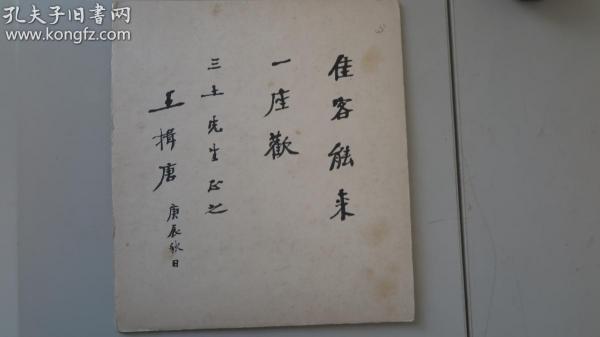 佳客能来
一座歡
三土先生正之
王揖唐
庚辰秋日
孔夫子旧书网
www.kongfz.com